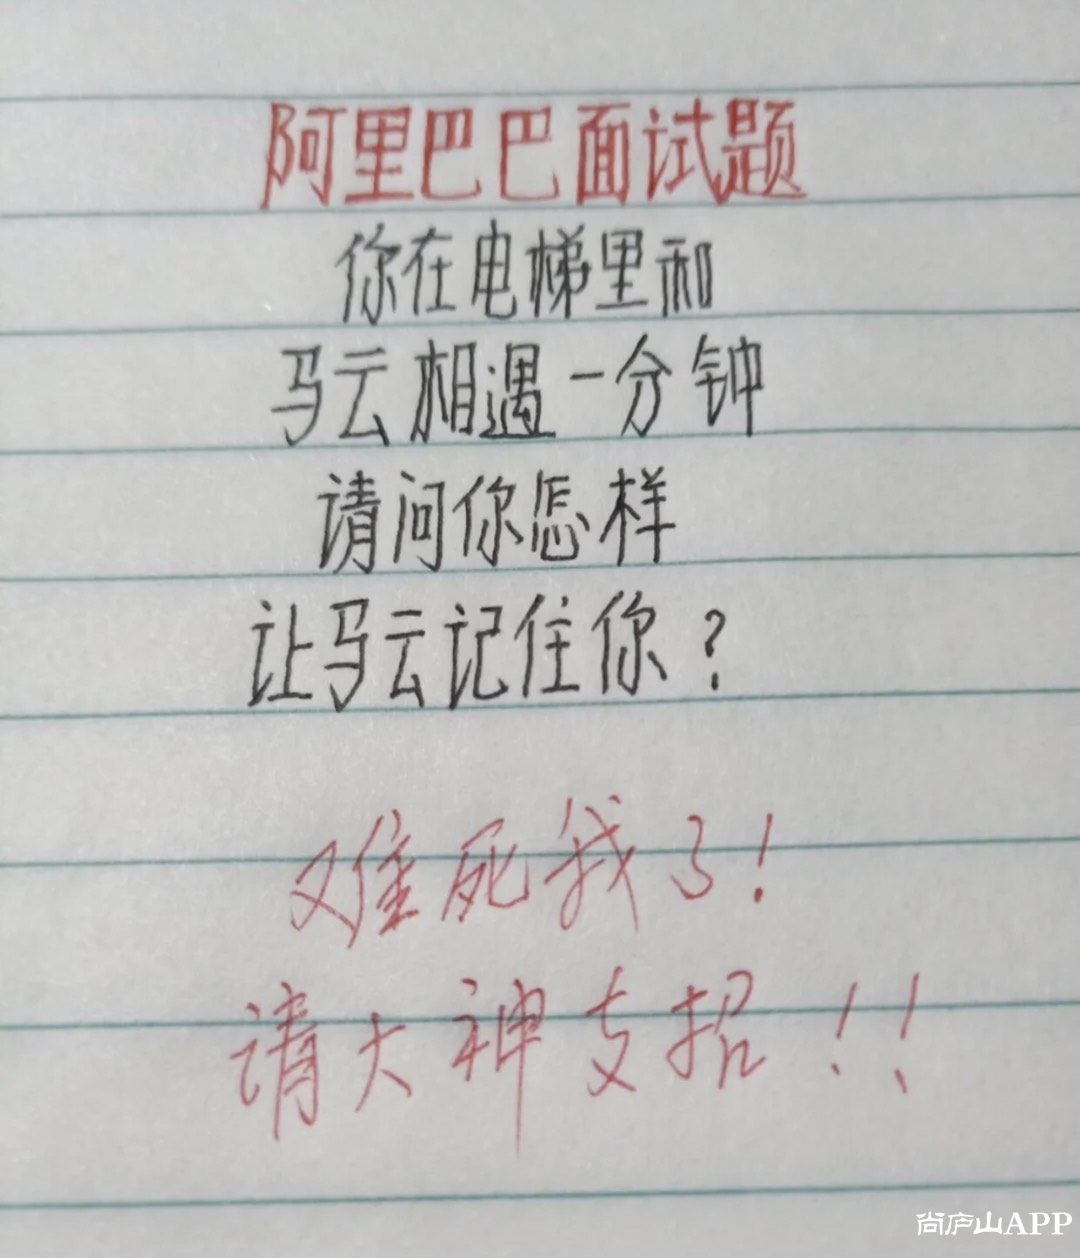 阿里巴巴面试题
你在电梯里和
马云相遇一分钟
请问你怎样
让马云记住你？
难死我了！
请大神支招！！
尚庐山APP